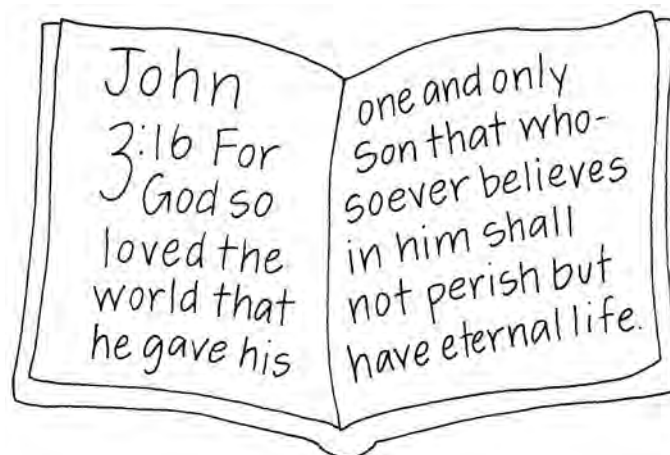 John
3:16 For
God so
loved the
world that
he gave his
one and only
Son that who-
soever believes
in him shall
not perish but
have eternal life.